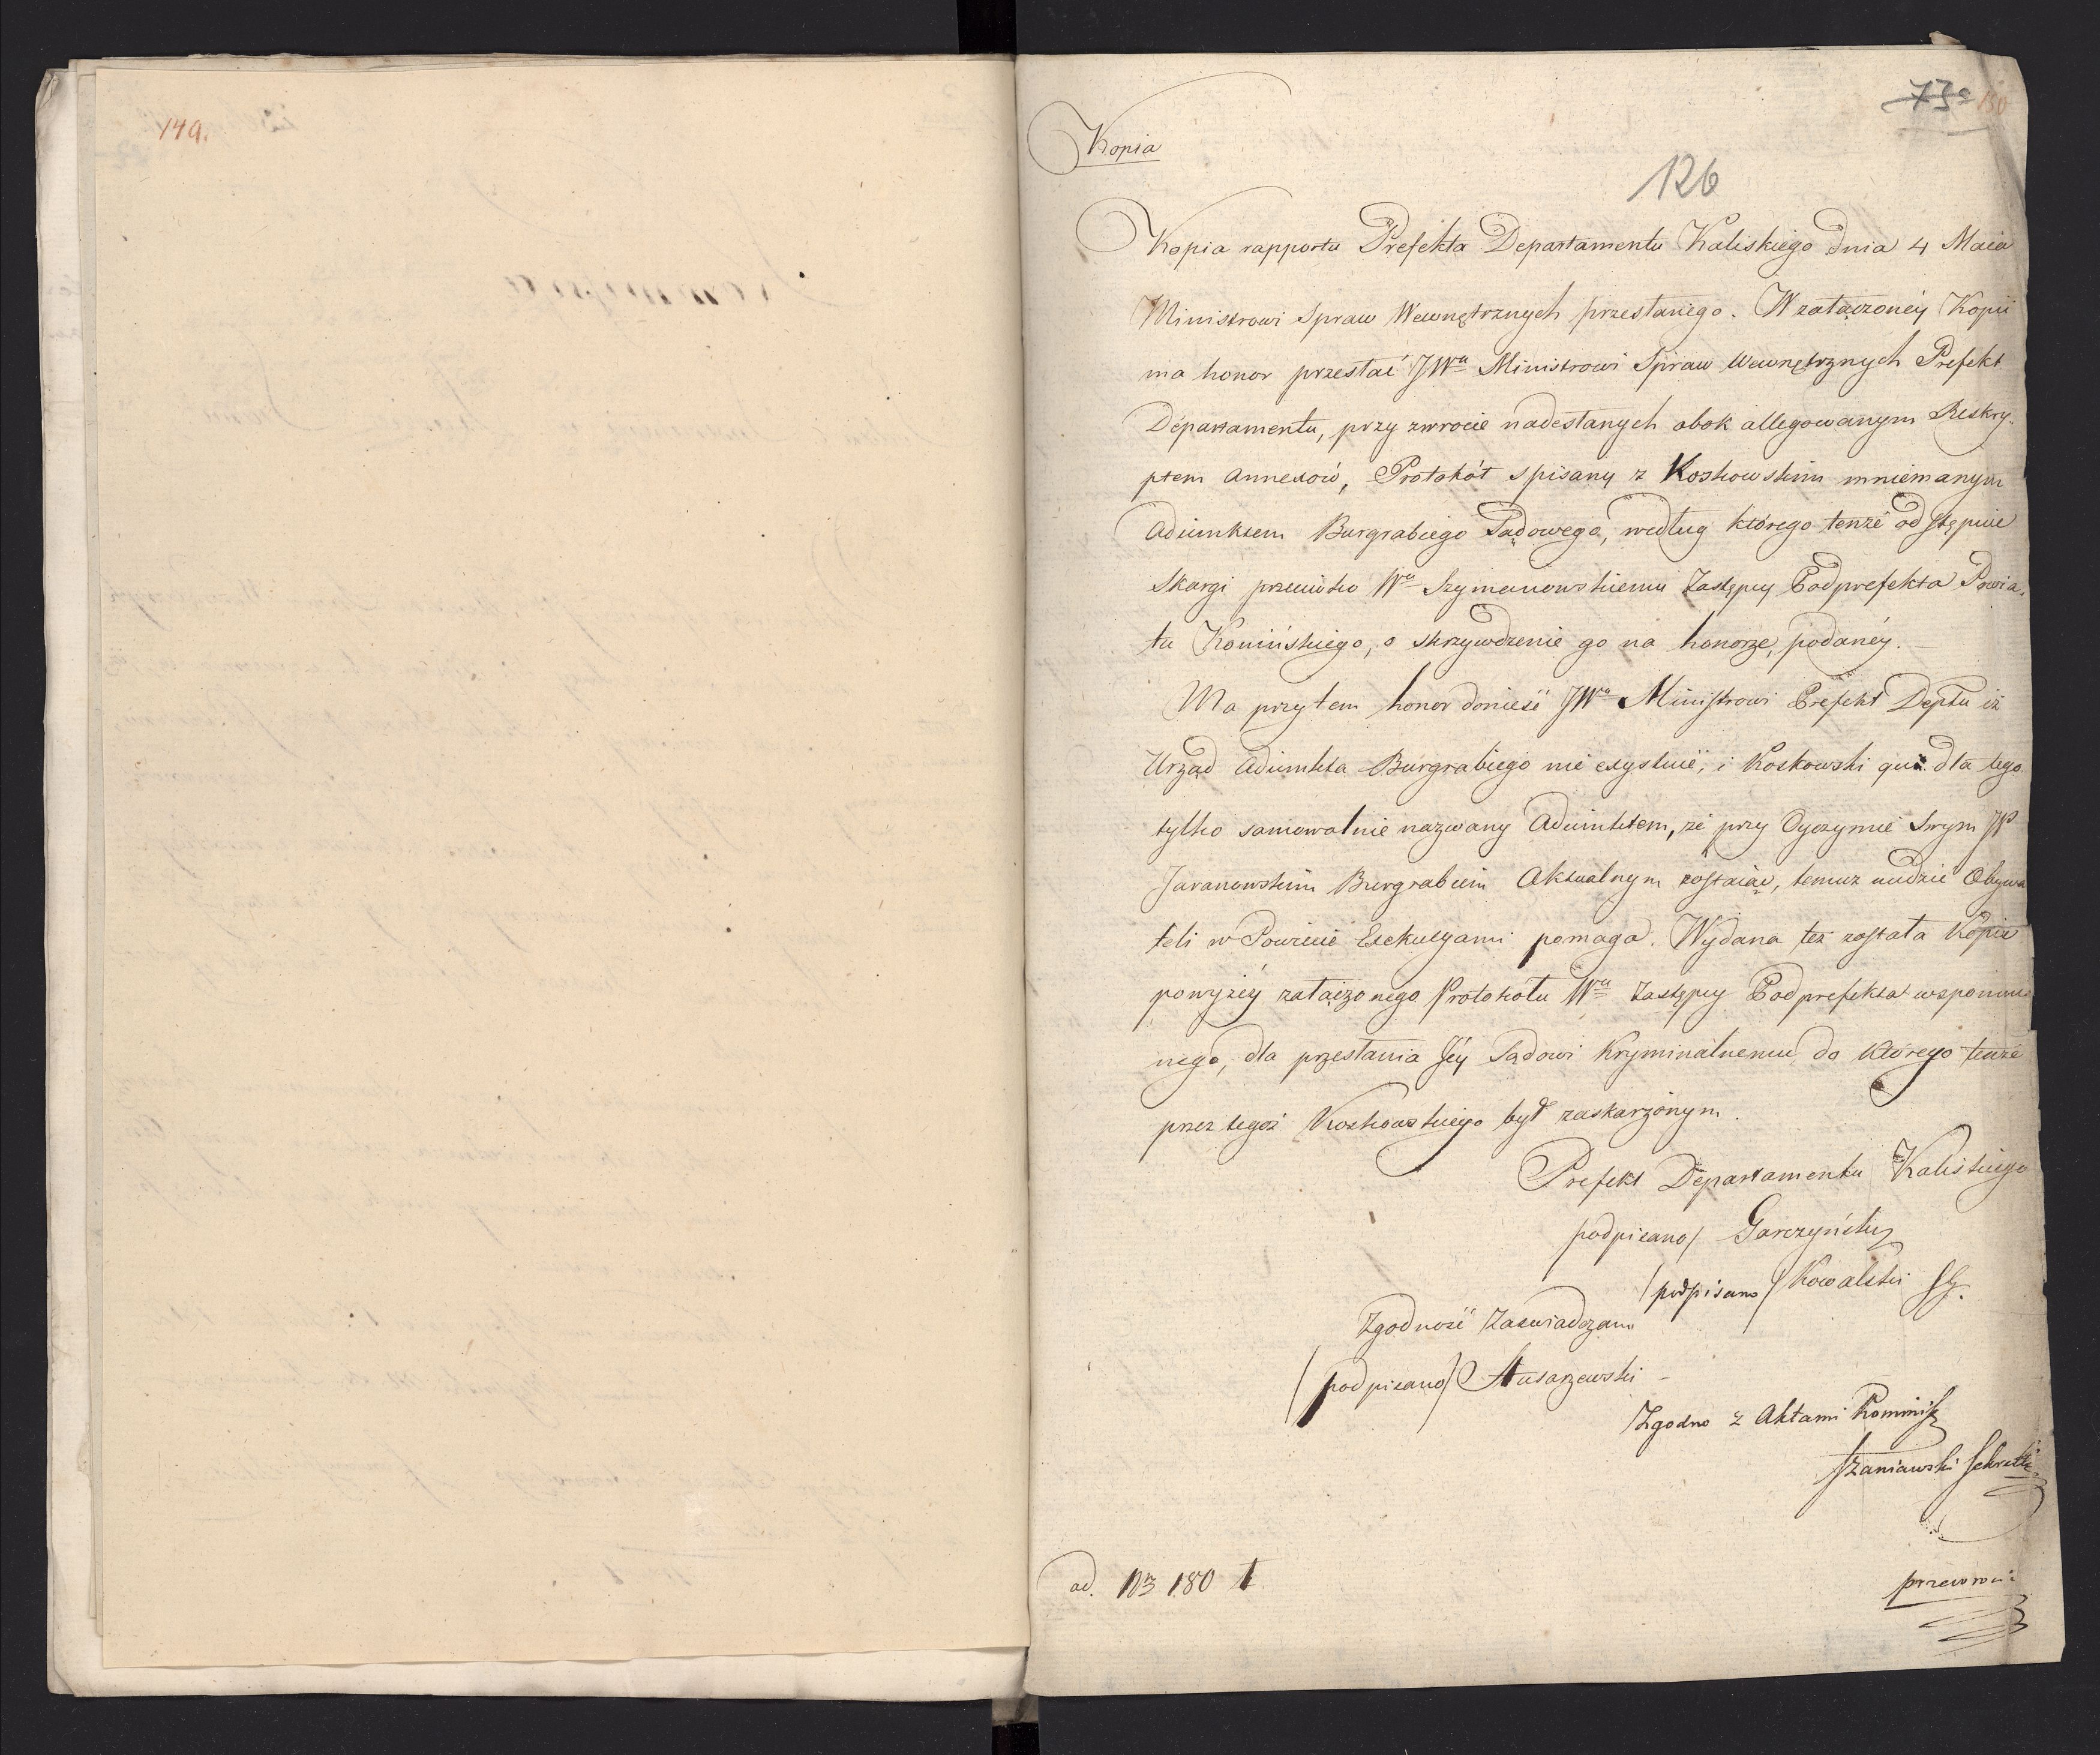 149.
73
150
Kopia
126
Kopia rapportu Prefekta Departamentu Kaliskiego dnia 4 Maia
Ministrowi Spraw Wewnętrznych przesłanego. W załączoney Kopii
ma honor przesłać JWu Ministrowi Spraw Wewnętrznych Prefekt
Departamentu, przy zwrocie nadesłanych obok allegowanym Reskry-
ptem Annexów, Protokół spisany z Koskowskim mniemanym
Adiunktem Burgrabiego Sądowego, według którego tenże odstępuie
Skargi przeciwko Wu Szymanowskiemu Zastępcy Podprefekta Powia-
tu Konińskiego, o skrzywdzenie go na honorze, podaney.
Ma przytem honor donieść JWu Ministrowi Prefekt Deptu iż
Urząd Adiunkta Burgrabiego nie exystuie, i Koskowski dla tego
tylko samowolnie nazwany Adiunktem, że przy Oyczymie Swym JP
Jaranowskim Burgrabim Aktualnym zostaiąc, temuż Obywa
teli w Powiecie Exekucyami pomaga. Wydana też została Kopia
powyżey załączonego Protokołu Wu Zastępcy Podprefekta wspomnio
nego, dla przesłania Jey Sądowi Kryminalnemu, do którego tenże
przez tegoż Koskowskiego był zaskarżonym.
Prefekt Departamentu Kaliskiego
podpisano/ Garczyński
/podpisano/ Kowalski SJ.
Zgodność Zaświadczam
/podpisano/ Slusarzewski
Zgodno z Aktami Kommiss
Szaniawski Sekretarz
ad. Nr 180 1
przewroć